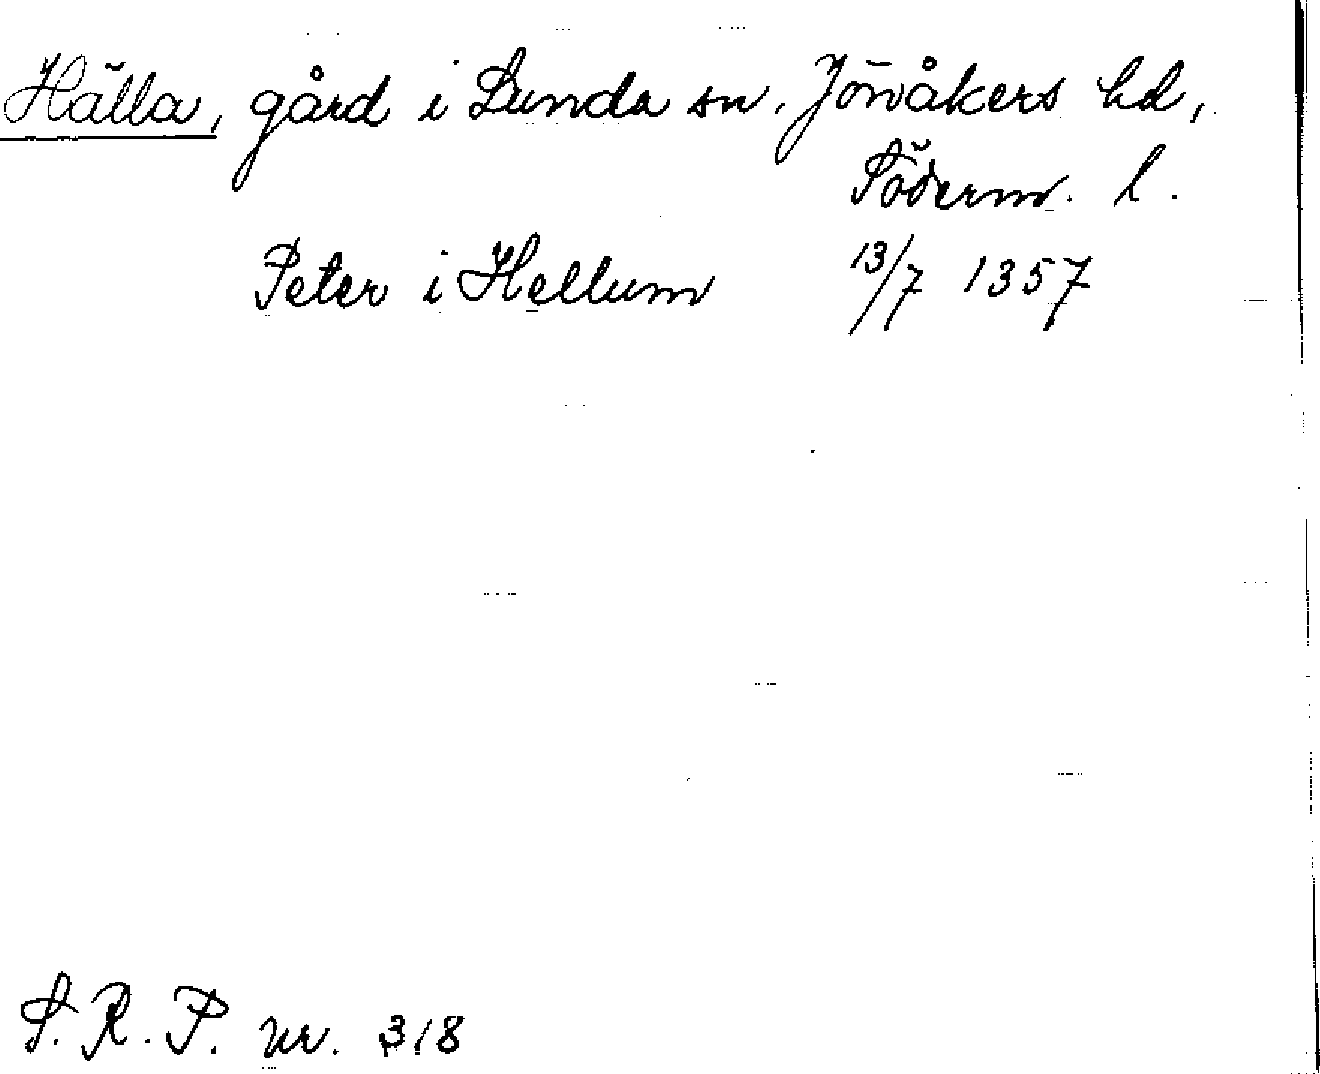 Hälla, gård i Lunda sn, Jönåkers hd,
Söderm. l.
Peter i Hellum 13/7 1357
S.R.P. nr. 318